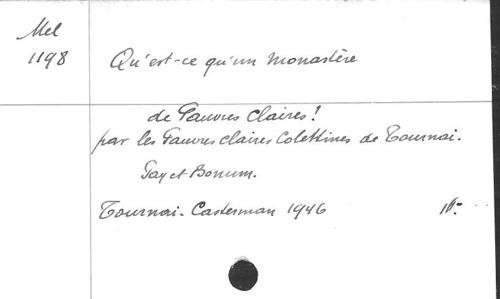 Mel
1198
Qu'est-ce qu'un monastère
de Pauvres Claires!
par les Pauvres Claires Colettines de Tournai.
Pax et Bonum.
Tournai. Casterman 1946